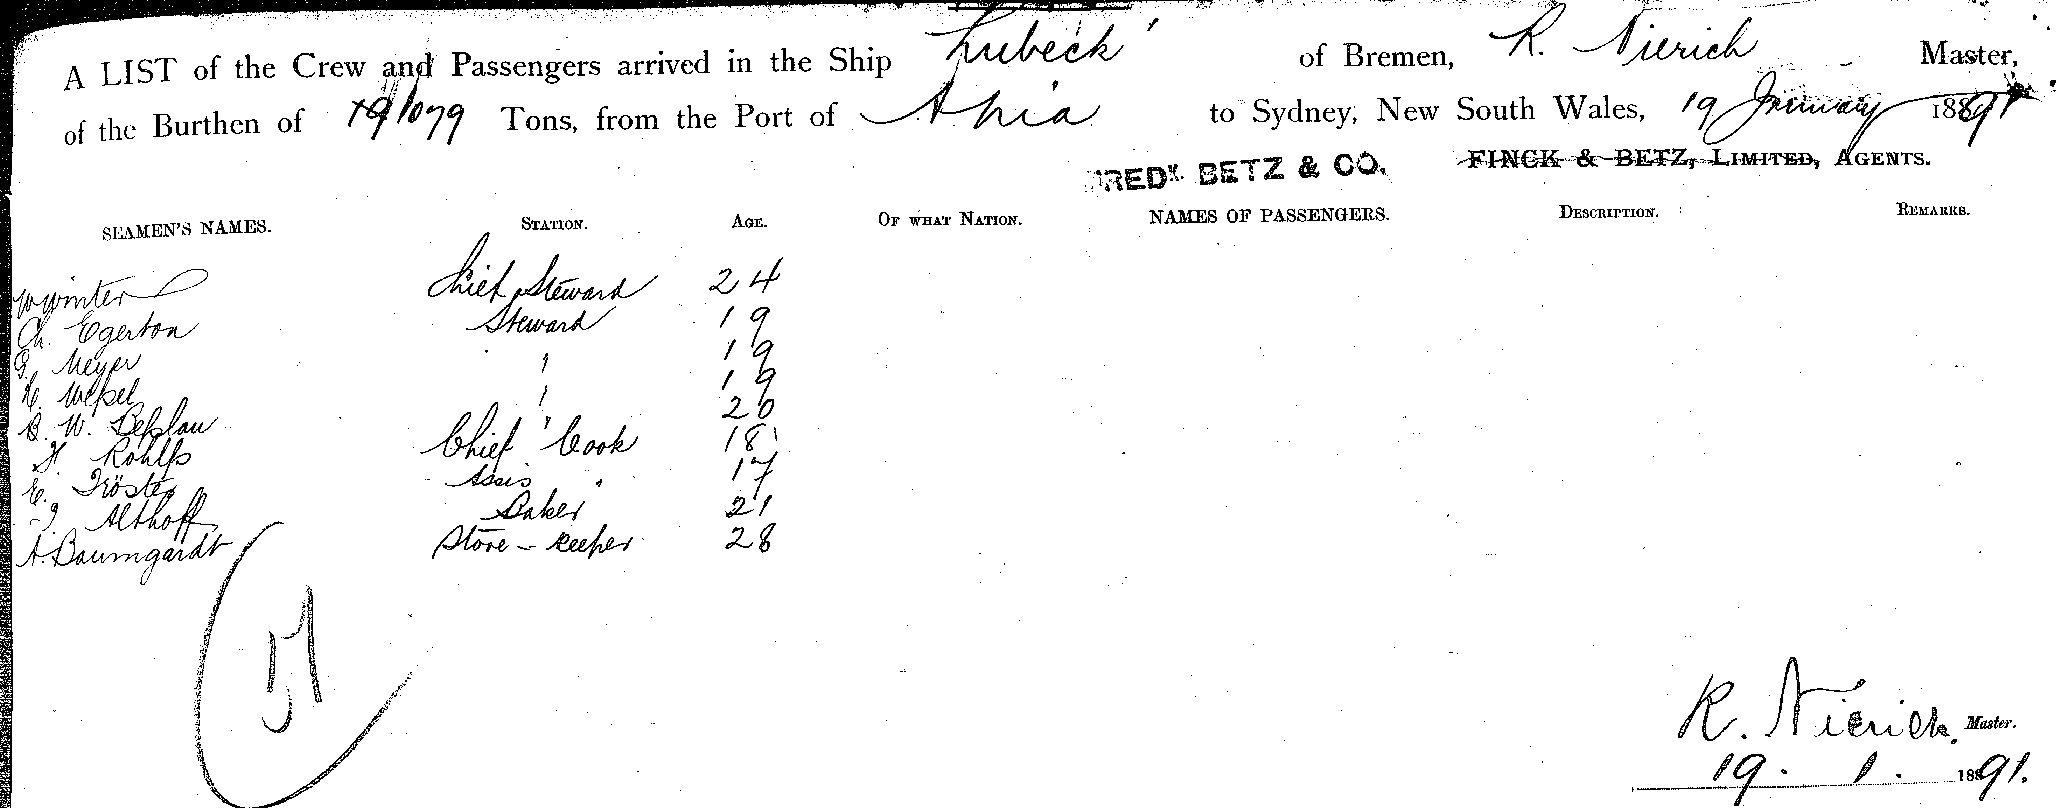 A LIST of the Crew and Passengers arrived in the Ship Lubeck' of Bremen, R. Nierich Master,
of the Burthen of 1079 Tons, from the Port of Apia to Sydney, New South Wales, 19 January 1891
FREDK. BETZ & CO. FINCK & BETZ, LIMITED, AGENTS.
SEAMEN'S NAMES. STATION. AGE. OF WHAT NATION. NAMES OF PASSENGERS. DESCRIPTION. REMARKS.
W Winter Chief Steward 24
Ch. Egerton Steward 19
G. Meyer " 19
H. Wessel " 19
B. W. " 20
H. Rohlfs Chief Cook 18
E. Tröster Assis " 17
J. Althoff Baker 21
A. Baumgardt Store-keeper 28
51
R. Nierich. Master.
19. 1. 1891.